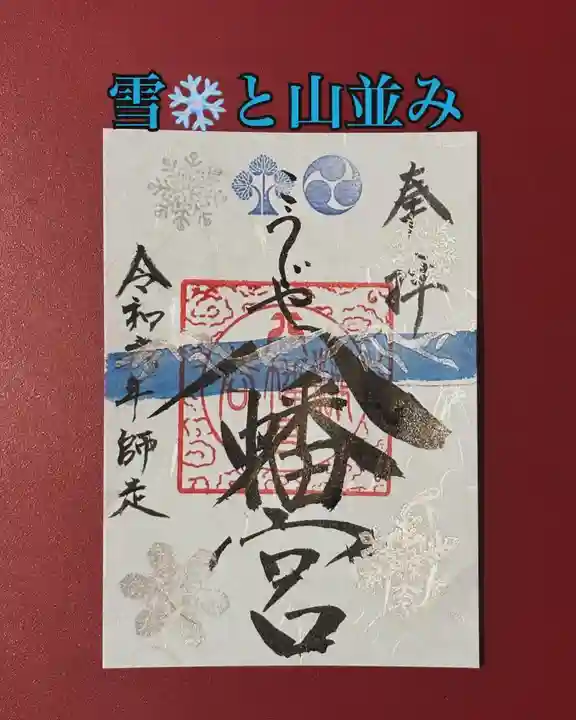 雪❄と山並み
奉拝
こうじや
八幡宮
令和六年師走